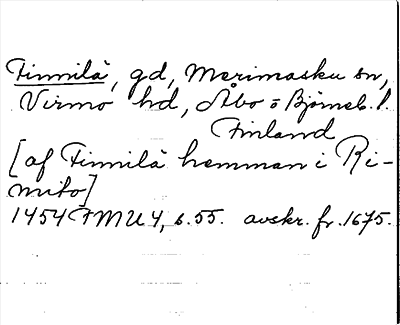 Finnilä, gd, Merimasku sn,
Virmo hd, Åbo o Björneb. l.
Finland
[af Finnilä hemman i Ri-
mito]
1454 FMU 4, s. 55. avskr. fr. 1675.